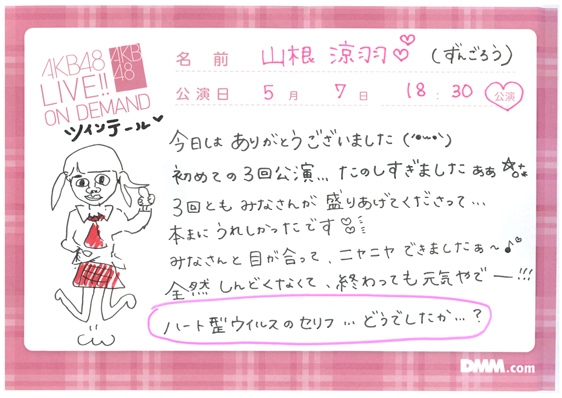 AKB48
LIVE!!
ON DEMAND
AKB
48
名前 山根 涼羽♡ (ずんごろう)
公演日 5月 7日 18:30 公演
ツインテール♥
今日は ありがとうございました (´•ω•`)
初めての3回公演... たのしすぎましたぁぁ☆
3回とも みなさんが 盛りあげてくださって...
本まに うれしかったです♡
みなさんと 目が 合って、ニヤニヤ できましたぁ〜♪
全然 しんどくなくて、終わっても 元気やでー!!!
ハート型ウイルスのセリフ... どうでしたか...?
DMM.com